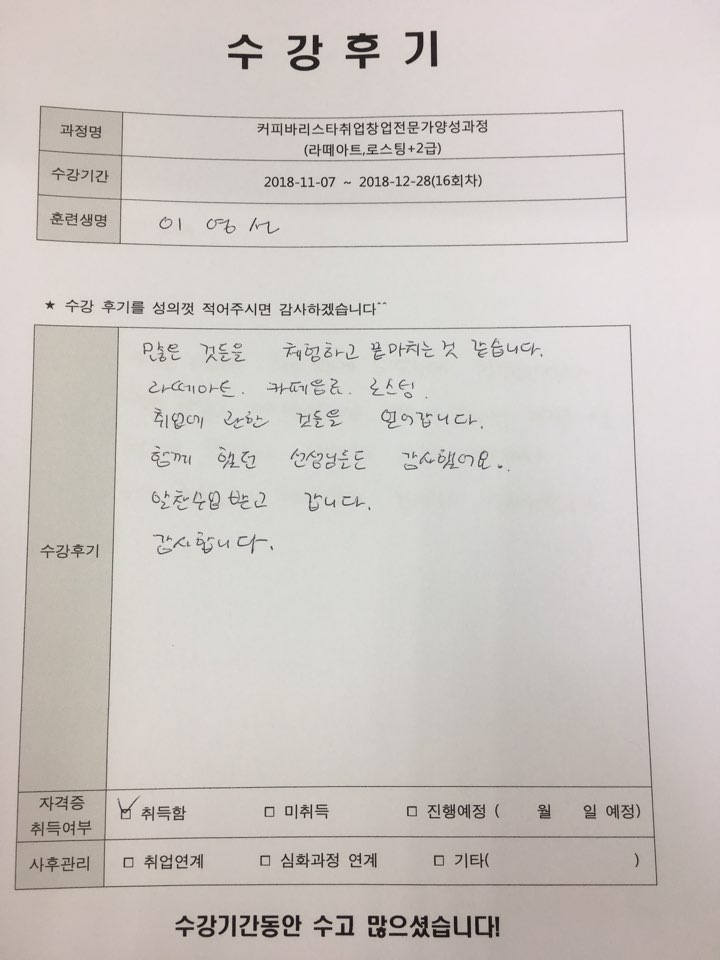 수강후기
과정명
커피바리스타취업창업전문가양성과정
(라떼아트,로스팅+2급)
수강기간
2018-11-07 ~ 2018-12-28(16회차)
훈련생명
이영선
★ 수강 후기를 성의껏 적어주시면 감사하겠습니다^^
수강후기
많은 것들을 체험하고 끝마치는것 같습니다.
라떼아트. 카페음료. 로스팅.
취업에 관한 것들을 얻어갑니다.
함께 했던 선생님들도 감사했어요.
알찬수업 받고 갑니다.
감사합니다.
자격증
취득여부
☑ 취득함 □ 미취득 □ 진행예정 ( 월 일 예정)
사후관리
□ 취업연계 □ 심화과정 연계 □ 기타( )
수강기간동안 수고 많으셨습니다!